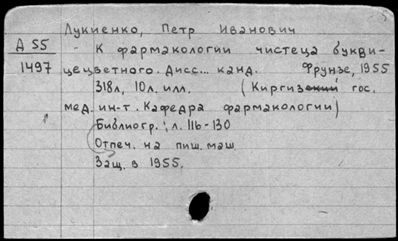 Лукиенко, Петр Иванович
Д 55
1497
- К фармакологии чистеца букви-
цецветного. Дисс... канд. Фрунзе, 1955
318л, 10л. илл. (Киргизский гос.
мед. ин-т. Кафедра фармакологии)
Библиогр.: л. 116-130
Отпеч. на пиш. маш.
Защ. в 1955.